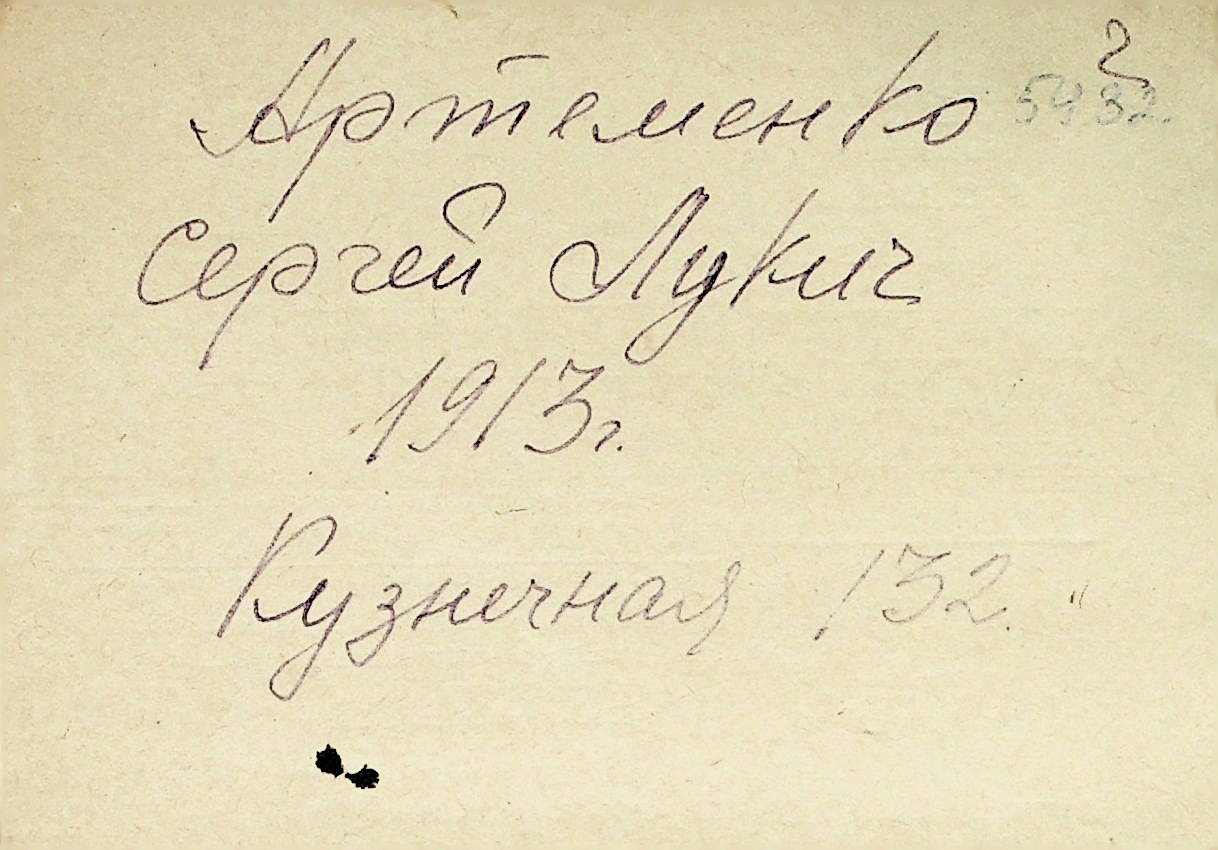 Артеменко 5432
Сергей Лукич
1913 г.
Кузнечная 132.